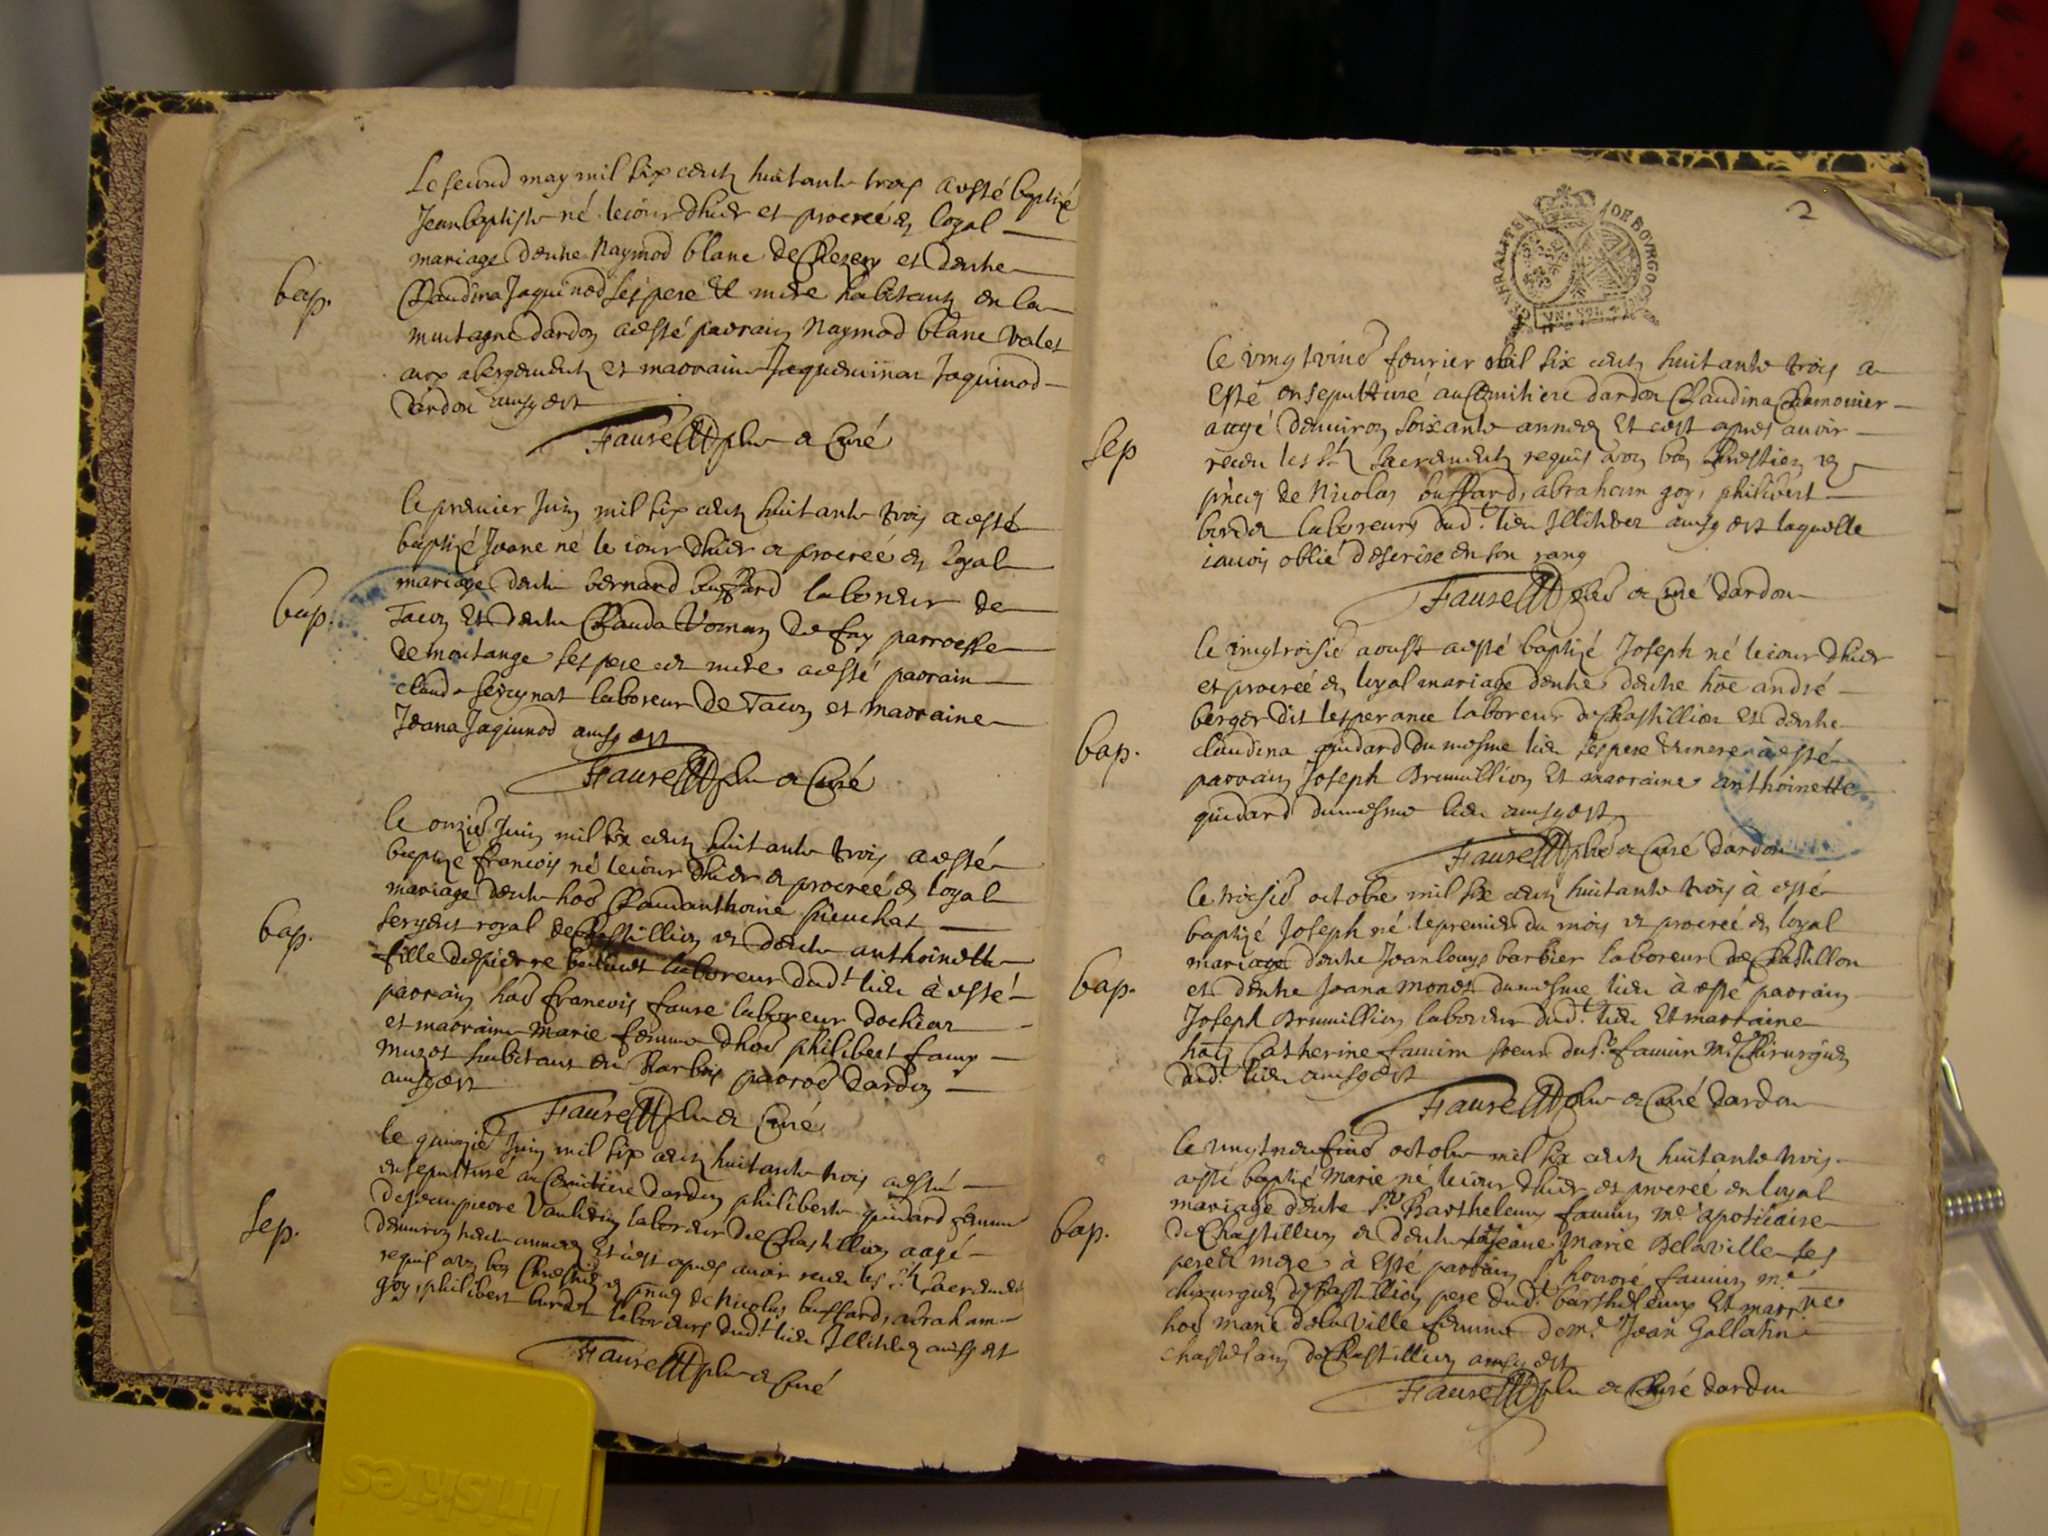 Le second may mil six cents huitante trois a esté baptizé
Jeanbaptiste né le iour dhier et procreé en loyal
mariage dentre Raymod blanc de Chezery et dentre
bap.
Claudina Jaquinod ses pere et mere habitants en la
montagne dardon a esté parrain Raymod blanc valet
aux abergements et marraine Jaquemina Jaquinod
dardon ainsy est
Faure pbre et Curé
le premier Juin mil six cents huitante trois a esté
baptizé Jeane né le iour dhier et procreé en loyal
mariage dentre bernard buffard laboreur de
bap.
Tacon Et dentre Clauda de fay parroesse
de montange ses pere et mere a esté parrain
claude laboreur de Tacon et marraine
Jeana Jaquinod ainsy est
Faure pbre et Curé
le onzie Juin mil six cents huitante trois a esté
baptizé francois né le iour dhier et procreé en loyal
mariage dentre hoe Claudanthoine
bap.
sergent royal de Chastillion et dentre anthoinette
fille de pierre laboreur dudt lieu à esté
parrain hoe francois faure laboreur dochiaz
et marraine Marie femme dhoe philibert famy
muzot habitant en parroe dardon
ainsy est
Faure pbre et Curé
le quinzie Juin mil six cents huitante trois a esté
ensepulturé au Cemitiere dardon philiberte guidard femme
Sep.
de Jeanpierre laboreur de Chastillion aagé
denviron annees Et cest apres avoir receu les Sts sacrements
requis a von bon Chrestien en pnce de Nicolas buffard, abraham
goy, philibert burdet laboreurs dudt lieu Illiteres ainsy est
Faure pbre et Curé
2
GENERALITE DE BOVRGOGNE
VN SOL
le vingtunie feurier mil six cents huitante trois a
Esté ensepulturé au Cemitiere dardon Claudina Chamonier
aagé denviron soixante annees Et cest apres avoir
Sep
receu les Sts Sacrements requis a von bon Chrestien en
pnce de Nicolas buffard, abraham goy, philibert
burdet laboreurs dudt. lieu Illiteres ainsy est laquelle
iavois oblié descrire en son rang
Faure pbre et Curé dardon
le vingtroisie aoust a esté baptizé Joseph né le iour dhier
et procreé en loyal mariage dentre dentre hoe andré
berger dit lesperance laboreur de Chastillion Et dentre
bap.
claudina guidard du mesme lieu ses pere et mere à esté
parrain Joseph Brunillion Et marraine anthoinette
guidard du mesme lieu ainsy est
Faure pbre et Curé dardon
le troisie octobre mil six cents huitante trois à esté
baptizé Joseph né le premier du mois et procreé en loyal
mariage dentre Jeanlouys barbier laboreur de Chastillon
bap.
et dentre Jeana monet du mesme lieu à esté parrain
Joseph Brunillion laboreur dudt. lieu Et marraine
Catherine famin soeur du Sr. famin Me Chirurgien
dudt. lieu ainsy est
Faure pbre et Curé dardon
le vingtneufuie octobre mil six cents huitante trois
a esté baptizé Marie né le iour dhier et procreé en loyal
mariage dentre Sr Barthelemy famin me apoticaire
bap.
de Chastillion et dentre Jeane Marie Delaville ses
pere et mere à Esté parrain Sr honoré famin me
chirurgien de Chastillion pere dudt. barthelemy Et marrine
hoe marie dela Ville femme de me. Jean Gallatin
chastelain de Chastillion ainsy est
Faure pbre et Curé dardon